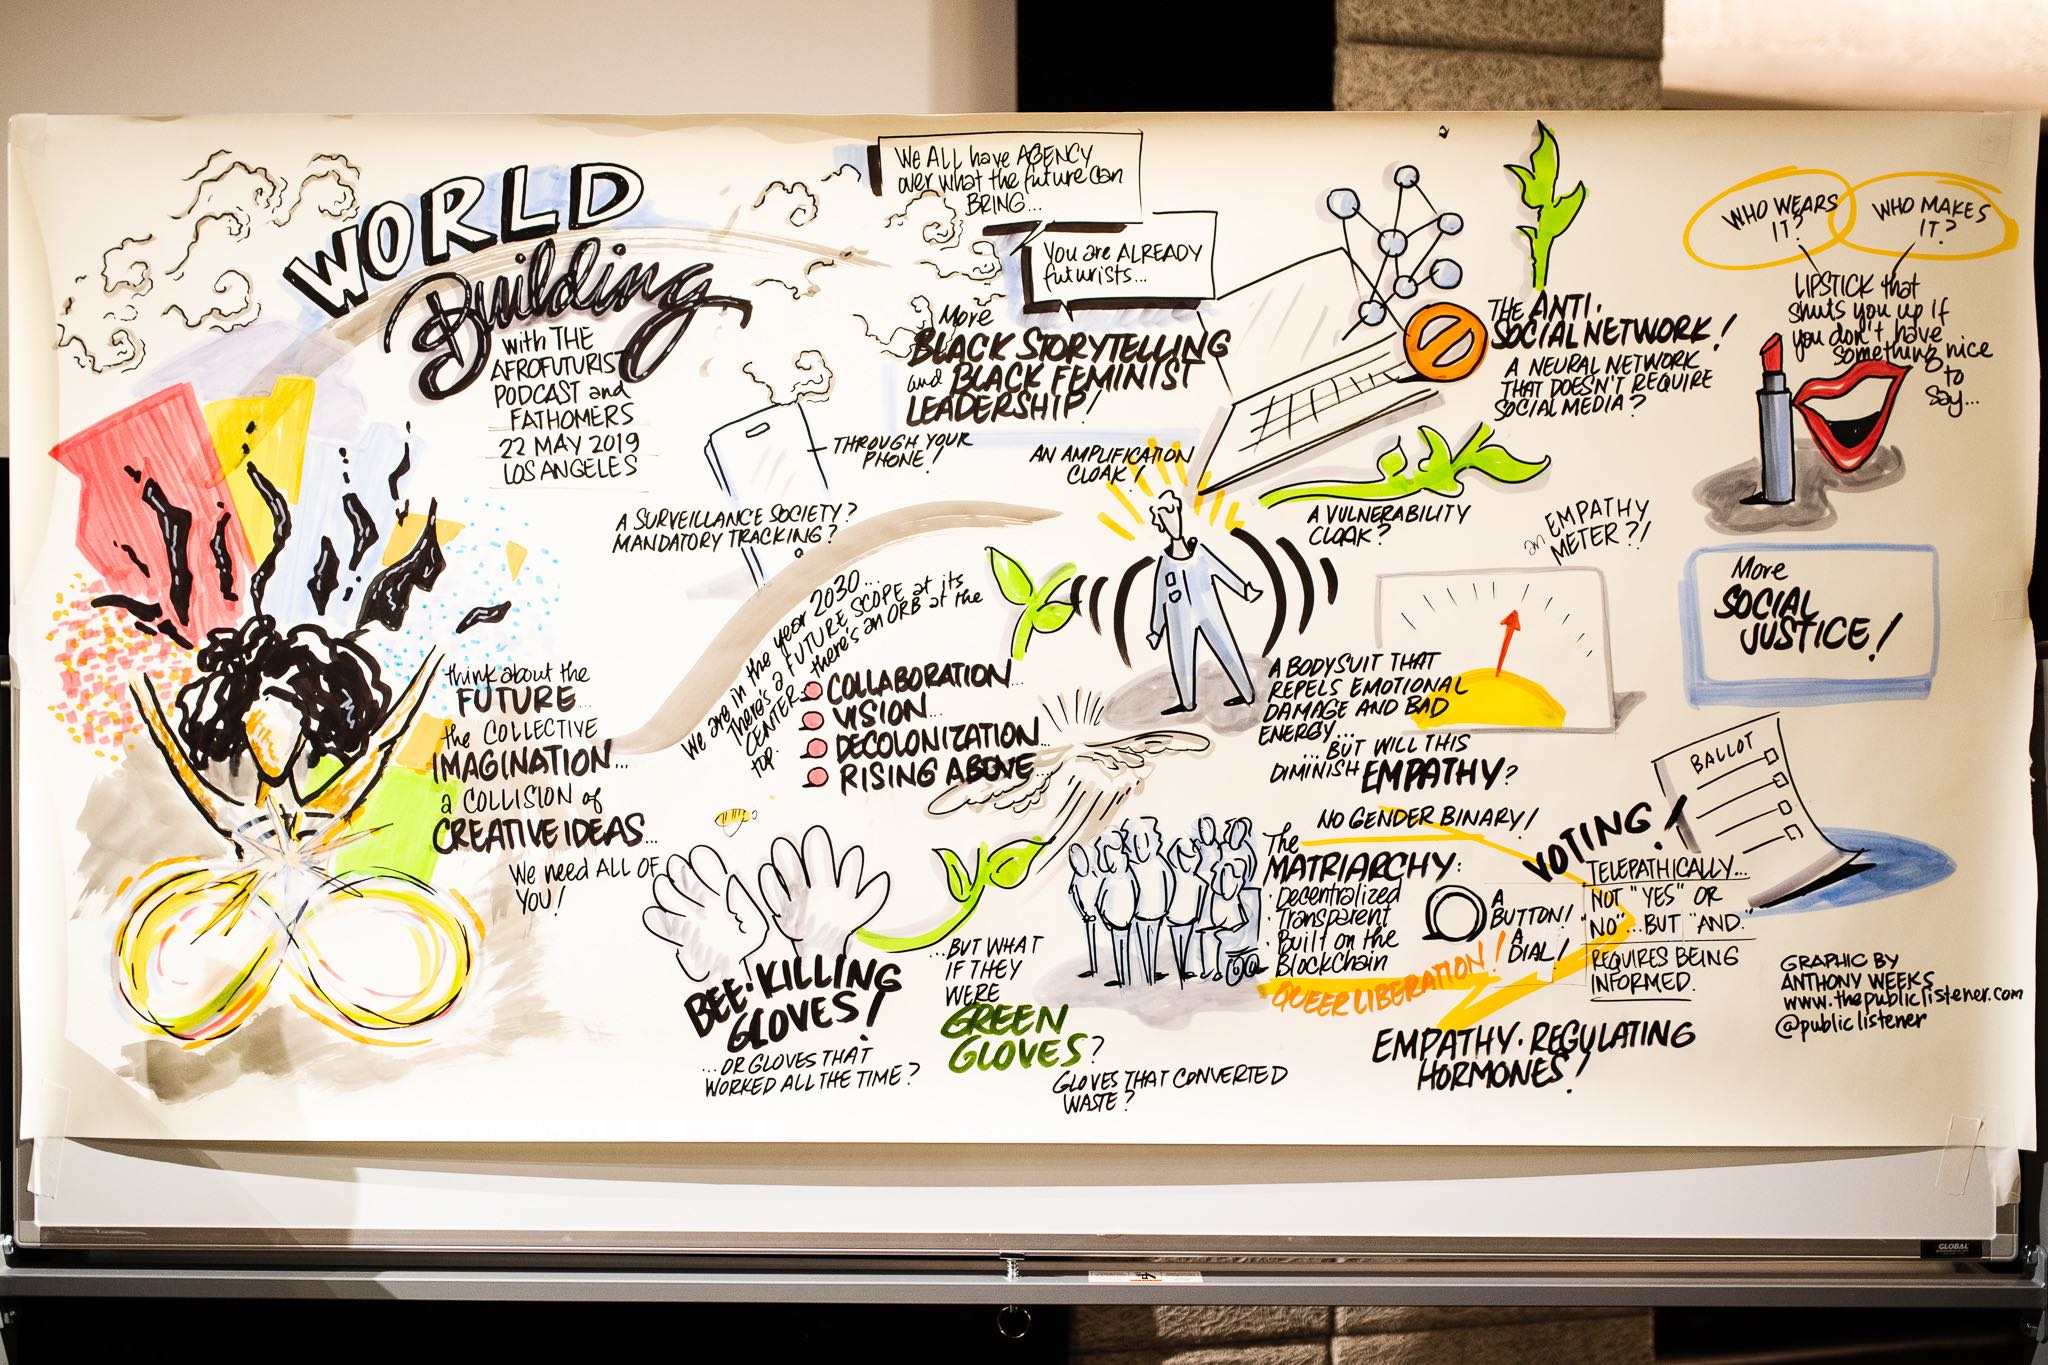 WORLD
Building
with THE
AFROFUTURIST
PODCAST and
FATHOMERS
22 MAY 2019
LOS ANGELES
think about the
FUTURE...
the COLLECTIVE
IMAGINATION...
a COLLISION of
CREATIVE IDEAS...
We need ALL OF
YOU!
We ALL have AGENCY
over what the future can
BRING...
You are ALREADY
futurists...
More
BLACK STORYTELLING
and BLACK FEMINIST
LEADERSHIP!
THROUGH YOUR
PHONE!
A SURVEILLANCE SOCIETY?
MANDATORY TRACKING?
We are in the year 2030...
There's a FUTURE SCOPE at its
CENTER... there's an ORB at the
top.
COLLABORATION...
VISION...
DECOLONIZATION...
RISING ABOVE...
BEE-KILLING
GLOVES!
...OR GLOVES THAT
WORKED ALL THE TIME?
...BUT WHAT
IF THEY
WERE
GREEN
GLOVES?
GLOVES THAT CONVERTED
WASTE?
AN AMPLIFICATION
CLOAK!
A VULNERABILITY
CLOAK?
THE ANTI-
SOCIAL NETWORK!
A NEURAL NETWORK
THAT DOESN'T REQUIRE
SOCIAL MEDIA?
an EMPATHY
METER?!
A BODYSUIT THAT
REPELS EMOTIONAL
DAMAGE AND BAD
ENERGY...
...BUT WILL THIS
DIMINISH EMPATHY?
NO GENDER BINARY!
The
MATRIARCHY:
· Decentralized
· Transparent
· Built on the
BlockChain
QUEER LIBERATION!
A
BUTTON!
A
DIAL!
VOTING!
TELEPATHICALLY...
NOT "YES" OR
"NO"...BUT "AND."
REQUIRES BEING
INFORMED.
EMPATHY-REGULATING
HORMONES!
WHO WEARS
IT?
WHO MAKES
IT?
LIPSTICK that
shuts you up if
you don't have
something nice
to
say...
More
SOCIAL
JUSTICE!
BALLOT
GRAPHIC BY
ANTHONY WEEKS
www.thepubliclistener.com
@publiclistener
GLOBAL